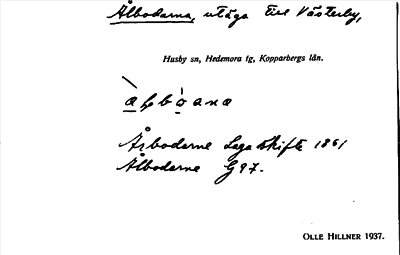 Ålbodarna, utäga till Västerby,
Husby sn, Hedemora tg, Kopparbergs län.
Årbodarne Laga skifte 1861
Ålbodarne G 97.
OLLE HILLNER 1937.